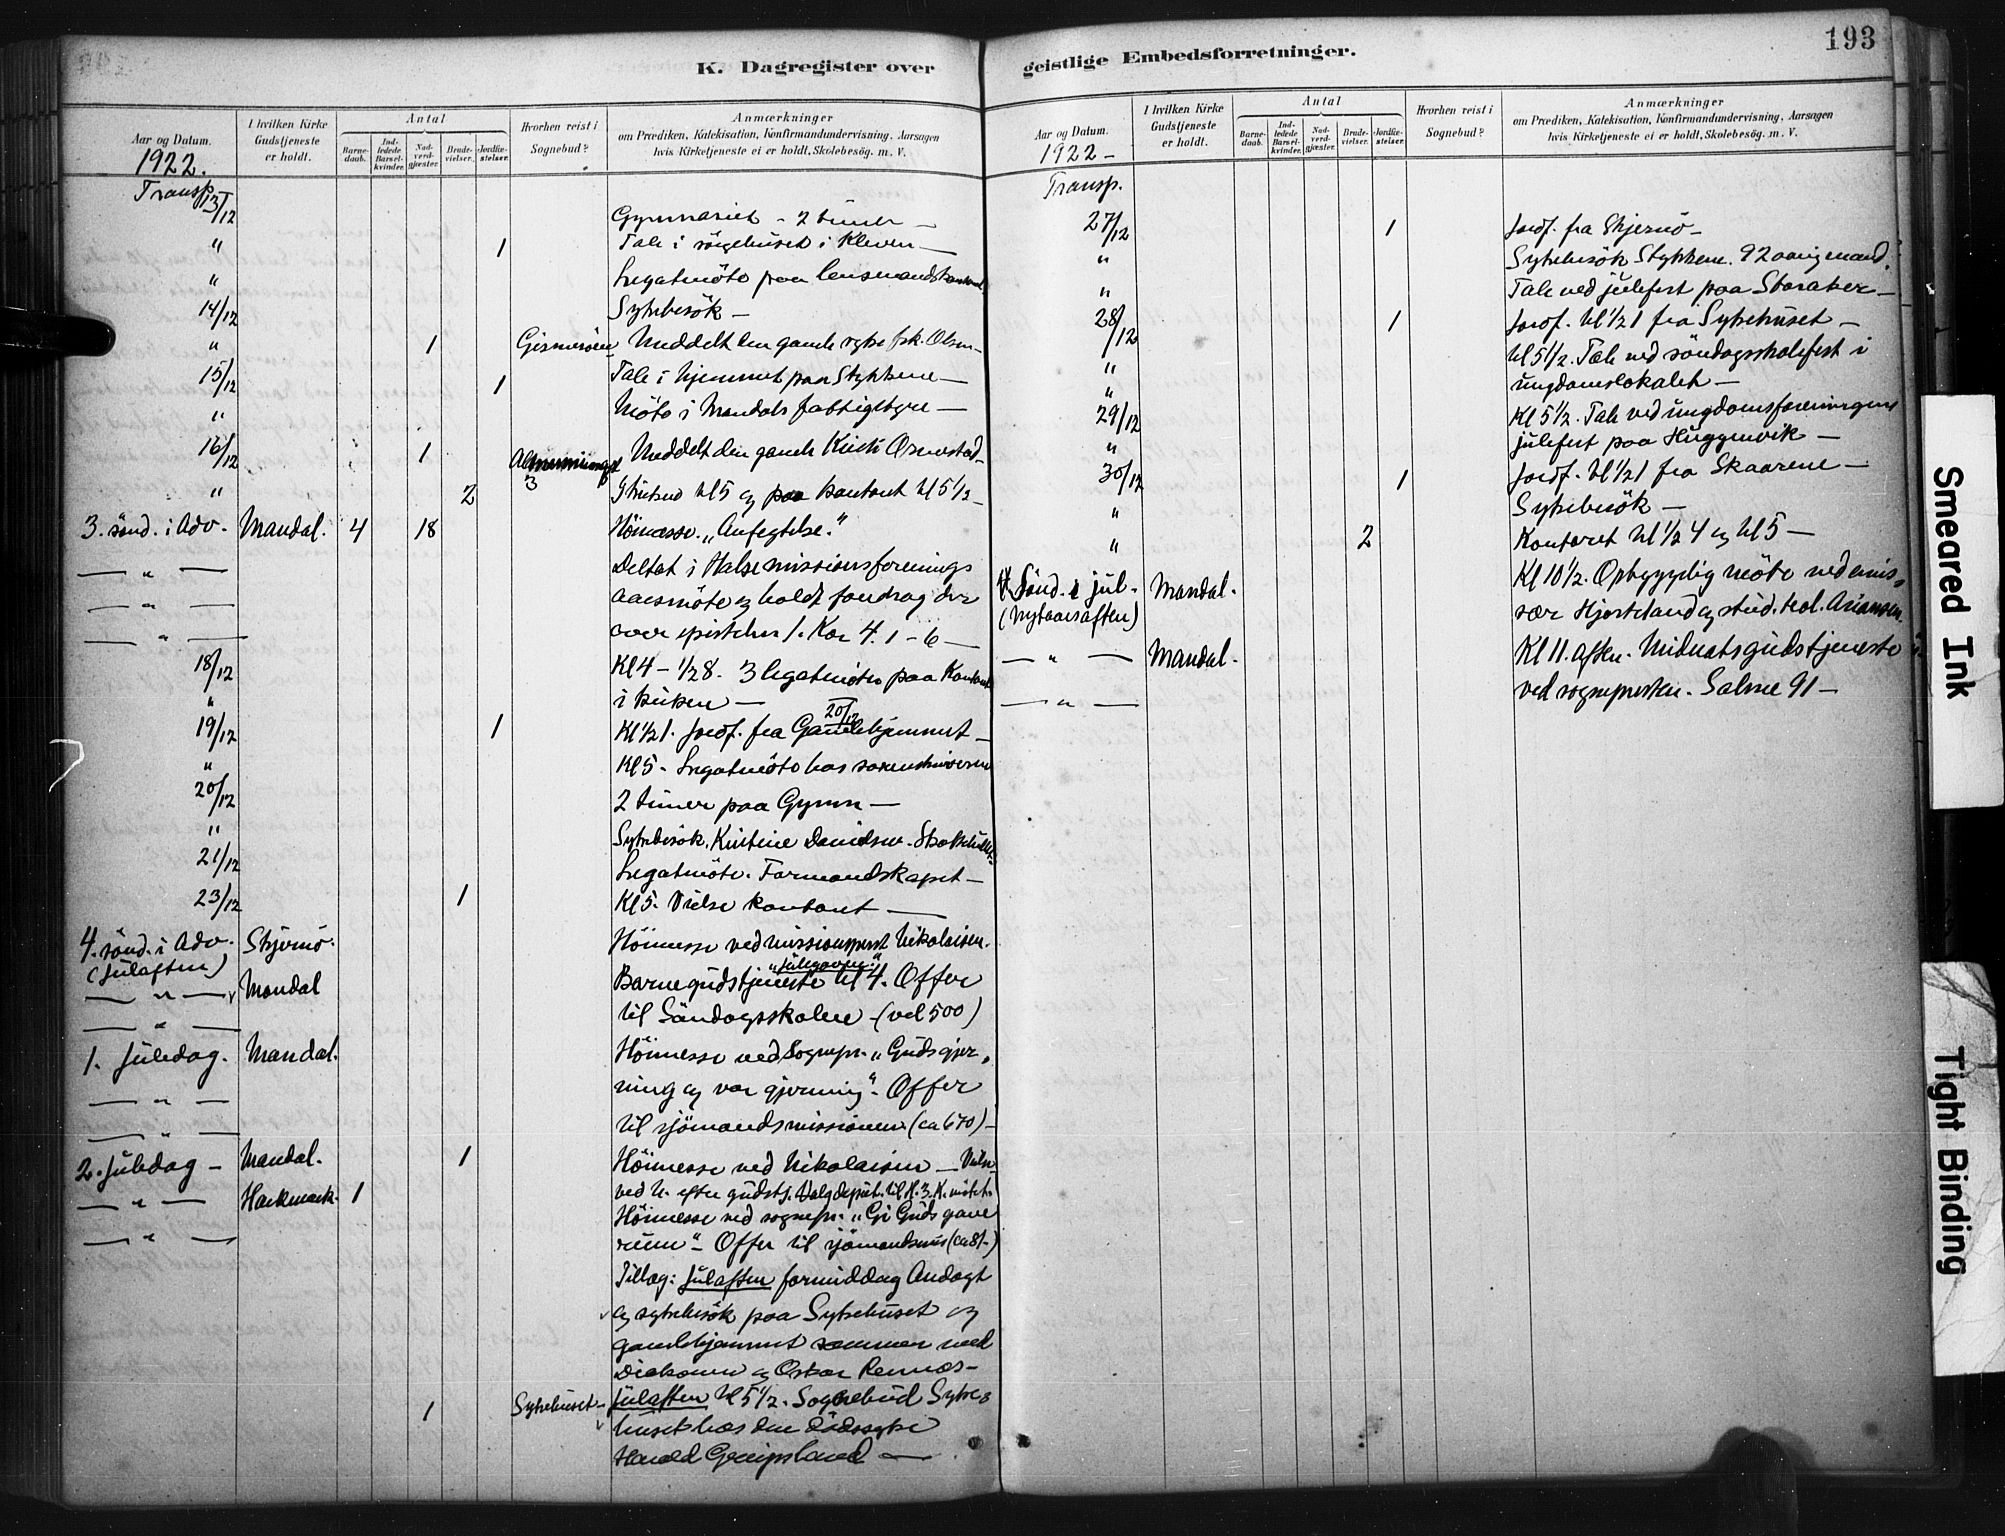 K. Dagregister over
Aar og Datum.
I hvilken Kirke Gudstjeneste er holdt.
Antal
Barne-daab.
Ind-ledede Barsel-kvinder.
Nad-verd-gjæster.
Brude-vielser.
Jordfæ-stelser.
Hvorhen reist i Sognebud?
Anmærkninger
om Prædiken, Katekisation, Konfirmandundervisning, Aarsagen
hvis Kirketjeneste ei er holdt, Skolebesøg. m. V.
1922.
Transp.
13/12 Gymnasiet - 2 timer -
" 1 Tale i sörgehuset i Kleven -
" Legatmöte paa lensmandskontoret
14/12 Sykebesök -
" 1 Meddelt den gamle syke frk. Olsen -
15/12 1 Tale i hjemmet paa Stykkene -
" Möte i Mandals fattigstyre -
16/12 1 Meddelt den gamle
" 2 kl 5 og paa kontoret kl 5 1/2 -
3. sönd. i Adv. Mandal. 4 18 Höimesse. "Anfegtelse."
— " — Deltat i Halse missionsforenings
— " — aarsmöte og holdt foredrag der
— " — over epistelen 1. Kor 4. 1-6 -
18/12 Kl 4 - 1/2 8. 3 legatmöter paa
" i kirken -
19/12 1 Kl 1/2 1. Jordf. fra Gamlehjemmet - 20/12
" Kl 5. Legatmöte hos sorenskriveren
20/12 2 timer paa Gymn -
" Sykebesök. Kristine Danielsen.
21/12 Legatmöte. Formandskapet -
23/12 1 Kl 5. Vielse kontoret -
4. sönd. i Adv. Skjernö. Höimesse ved missionsprest Nikolaisen.
(Julaften) "Julegaven."
— " — Mandal Barnegudstjeneste kl 4. Offer
— " — til Söndagsskolen - (vel 500)
1. Juledag. Mandal. Höimesse ved Sognepr. "Guds gjer-
— " — ning og vor gjerning". Offer
— " — til sjömandsmissionen (ca 670) -
2. Juledag - Mandal. 1 Höimesse ved Nikolaisen - Vielse
— " — Harkmark. 1 ved N. efter gudstj. Valg deput. til
Höimesse ved sognepr. "Gi Guds gave
— " — rum" - Offer til sjömandsmis (ca 81-)
Tillæg: Julaften formiddag Andagt
og sykebesök paa Sykehuset og
gamlehjemmet sammen med
Diakonen og Oskar
1 Sykehuset - Julaften kl 5 1/2. Sognebud Syke-
huset hos den dödssyke
Harald
geistlige Embedsforretninger.
193
Aar og Datum.
I hvilken Kirke Gudstjeneste er holdt.
Antal
Barne-daab.
Ind-ledede Barsel-kvinder.
Nad-verd-gjæster.
Brude-vielser.
Jordfæ-stelser.
Hvorhen reist i Sognebud?
Anmærkninger
om Prædiken, Katekisation, Konfirmandundervisning, Aarsagen
hvis Kirketjeneste ei er holdt, Skolebesög. m. V.
1922 -
Transp.
27/12 1 Jordf. fra Skjernö -
" Sykebesök Stykkene. 92 aarig mand.
" Tale ved julefest paa Storaker -
28/12 1 Jordf. kl 1/2 1 fra Sykehuset -
kl 5 1/2. Tale ved söndagsskolefest i
" ungdomslokalet -
"
29/12 Kl 5 1/2. Tale ved ungdomsforeningens
" julefest paa Huggenvik -
30/12 1 Jordf. kl 1/2 1 fra Skaarene -
" Sykebesök -
" 2 Kontoret kl 1/2 4 og kl 5 -
Sönd. i jul. Mandal. Kl 10 1/2. Opbyggelig möte ved emis-
(nytaarsaften) sær Hjorteland og stud. teol.
— " — Mandal. Kl 11. Aften. Midnatsgudstjeneste
— " — ved sognepresten. Salme 91 -
Smeared Ink
Tight Binding